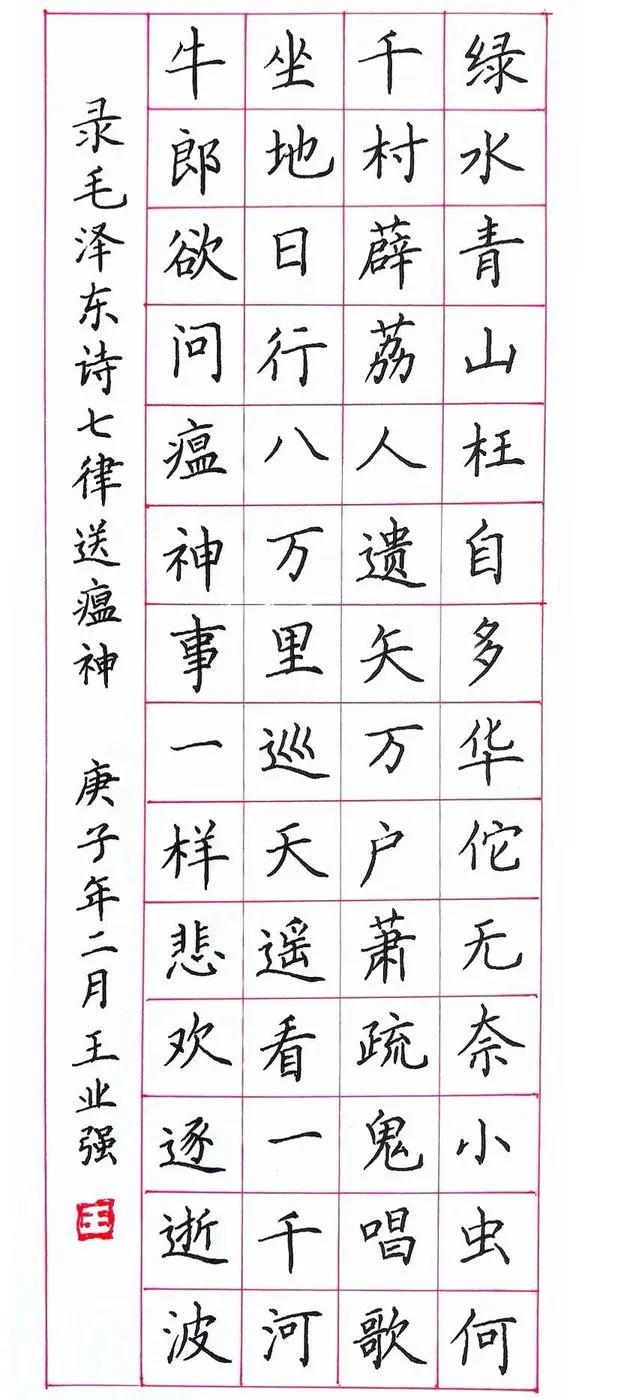 绿水青山枉自多华佗无奈小虫何
千村薜荔人遗矢万户萧疏鬼唱歌
坐地日行八万里巡天遥看一千河
牛郎欲问瘟神事一样悲欢逐逝波
录毛泽东诗七律送瘟神 庚子年二月王业强
王